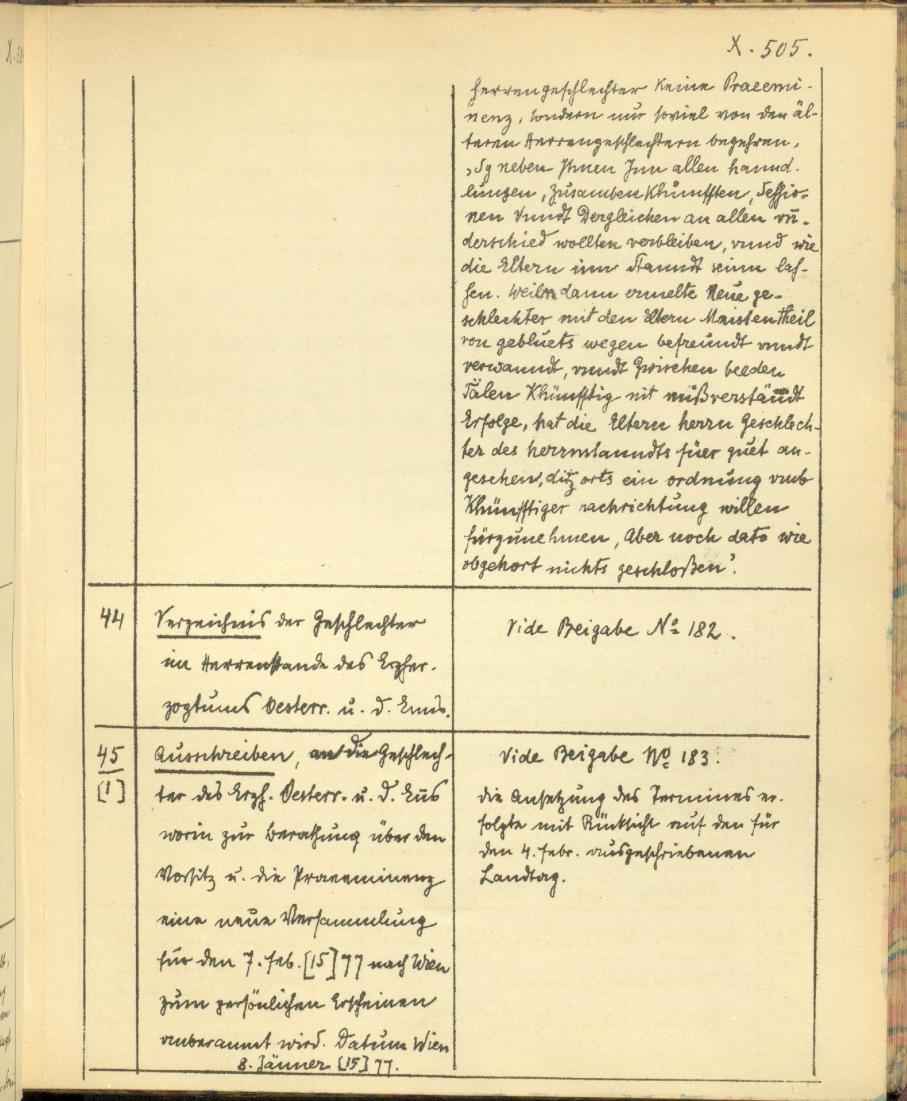 X. 505.
Herrengeschlechter keine Praeemi-
nenz, sondern nur soviel von den äl-
teren Herrengeschlechtern begehren,
„Sy neben Ihnen Inn allen hannd-
lungen, Zusambenkhünfften, Sessio-
nen Vnndt Dergleichen an allen vn̄-
derschied wollten verbleiben, vnnd wie
die Eltern inn Stanndt seinn las-
sen. Weiln dann ermelte Neue ge-
schlechter mit den Eltern Maistentheil
von gebluets wegen befreundt vnndt
verwanndt, vnndt Zwischen beeden
Tälen Khünfftig nit mißverständt
Erfolge, hat die Eltern herrn Geschlech-
ter des herrnstanndts füer guet an-
gesehen, ditz orts ein ordnung vmb
Khünfftiger nachrichtung willen
fürzunehmen, Aber noch dato wie
obgehort nichts geschloßen“.
44 Verzeichnis der Geschlechter
im Herrenstande des Erzher-
zogtums Oesterr. u. d. Enns.
Vide Beigabe No 182.
45
[1]
Ausschreiben, an die Geschlech-
ter des Erzh. Oesterr. u. d. Ens
worin zur Berathung über den
Vorsitz u. die Praeeminenz
eine neue Versammlung
für den 7. Feb. [15]77 nach Wien
zum persönlichen Erscheinen
anberaumt wird. Datum Wien
8. Jänner [15]77.
Vide Beigabe No 183.
die Ansetzung des Termines er-
folgte mit Rücksicht auf den für
den 4. Febr. ausgeschriebenen
Landtag.